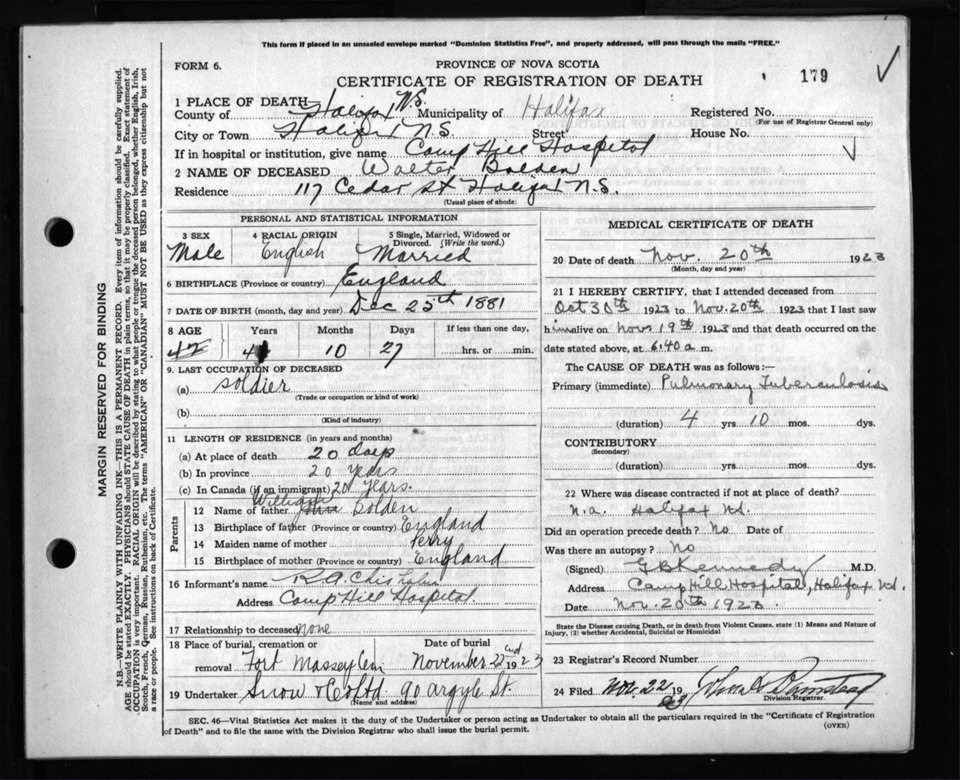 This form if placed in an unsealed envelope marked "Dominion Statistics Free", and properly addressed, will pass through the mails "FREE."
FORM 6.
PROVINCE OF NOVA SCOTIA
CERTIFICATE OF REGISTRATION OF DEATH
179
1 PLACE OF DEATH
County of Halifax N.S. Municipality of Halifax Registered No.
(For use of Registrar General only)
City or Town Halifax N.S. Street House No.
If in hospital or institution, give name Camp Hill Hospital
2 NAME OF DECEASED Walter Bolden
Residence 117 Cedar St Halifax N.S.
(Usual place of abode)
PERSONAL AND STATISTICAL INFORMATION
3 SEX Male
4 RACIAL ORIGIN English
5 Single, Married, Widowed or Divorced. (Write the word.) Married
6 BIRTHPLACE (Province or country) England
7 DATE OF BIRTH (month, day and year) Dec 25th 1881
8 AGE Years Months Days If less than one day,
42 41 10 27 hrs. or min.
9. LAST OCCUPATION OF DECEASED
(a) soldier
(Trade or occupation or kind of work)
(b)
(Kind of industry)
11 LENGTH OF RESIDENCE (in years and months)
(a) At place of death 20 days
(b) In province 20 years
(c) In Canada (if an immigrant) 20 years.
Parents
12 Name of father William Bolden
13 Birthplace of father (Province or country) England
14 Maiden name of mother Perry
15 Birthplace of mother (Province or country) England
16 Informant's name R.A. Chisholm
Address Camp Hill Hospital.
17 Relationship to deceased none
18 Place of burial, cremation or removal Fort Massey Cem Date of burial November 22nd 1923
19 Undertaker Snow & Co Ltd 90 Argyle St.
(Name and address)
MEDICAL CERTIFICATE OF DEATH
20 Date of death Nov. 20th 1923
(Month, day and year)
21 I HEREBY CERTIFY, that I attended deceased from
Oct 30th 1923 to Nov. 20th 1923 that I last saw
him alive on Nov. 19th 1923 and that death occurred on the
date stated above, at 6.40 a m.
The CAUSE OF DEATH was as follows:—
Primary (immediate) Pulmonary Tuberculosis
(duration) 4 yrs 10 mos. dys.
CONTRIBUTORY
(Secondary)
(duration) yrs. mos. dys.
22 Where was disease contracted if not at place of death?
n.a. Halifax
Did an operation precede death? No Date of
Was there an autopsy? No
(Signed) G B Kennedy M.D.
Address Camp Hill Hospital, Halifax
Date Nov. 20th 1923
State the Disease causing Death, or in death from Violent Causes, state (1) Means and Nature of
Injury, (2) whether Accidental, Suicidal or Homicidal
23 Registrar's Record Number
24 Filed Nov. 22 1923
Division Registrar.
SEC. 46—Vital Statistics Act makes it the duty of the Undertaker or person acting as Undertaker to obtain all the particulars required in the "Certificate of Registration
of Death" and to file the same with the Division Registrar who shall issue the burial permit.
(OVER)
MARGIN RESERVED FOR BINDING
N.B.—WRITE PLAINLY WITH UNFADING INK—THIS IS A PERMANENT RECORD. Every item of information should be carefully supplied.
AGE should be stated EXACTLY. PHYSICIANS should STATE CAUSE OF DEATH in plain terms, so that it may be properly classified. Exact statement of
OCCUPATION is very important. RACIAL ORIGIN will be described by stating to what people or tongue the deceased person belonged, whether English, Irish,
Scotch, French, German, Russian, Ruthenian, etc. The terms "AMERICAN" OR "CANADIAN" MUST NOT BE USED as they express citizenship but not
a race or people. See instructions on back of Certificate.